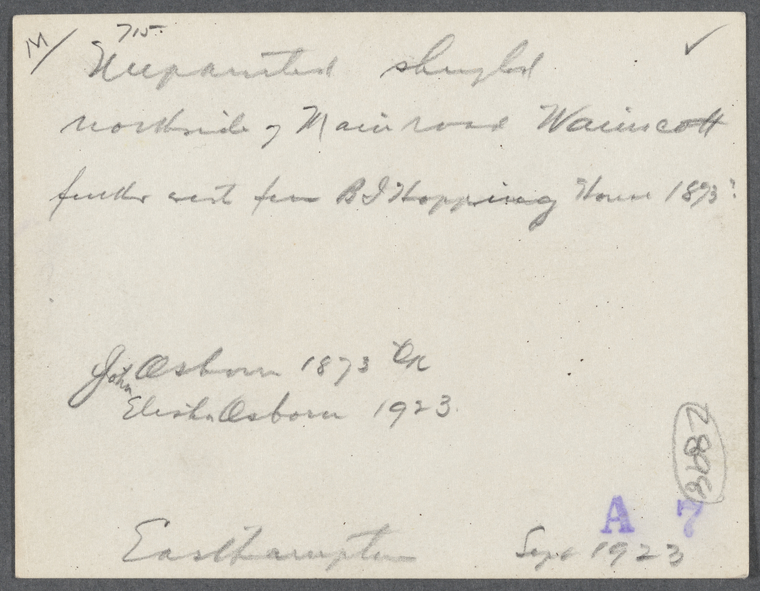 M/ 715- ✓
Unpainted shingled
northside of Main road Wainscott
further west from B I Hopping House 1873?
John Osborn 1873 OK
Elisha Osborn 1923
2898
A 7
Easthampton Sept 1923